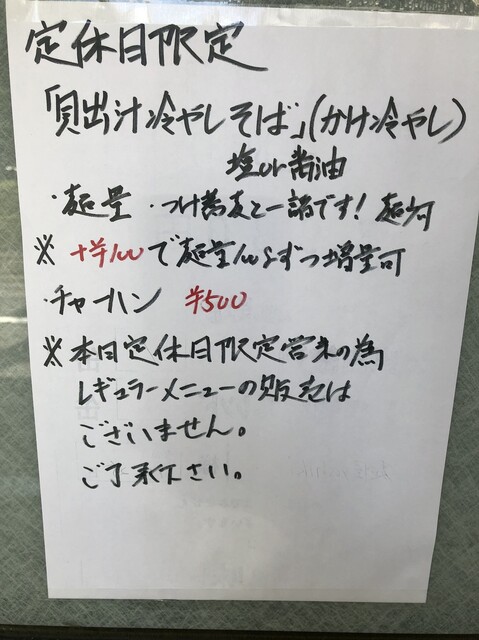 定休日限定
「貝出汁冷やしそば」(かけ冷やし)
塩or醤油
・麺量・つけ蕎麦と一諸です!
※ +¥100で麺量100gずつ増量可
・チャーハン ¥500
※本日定休日限定営業の為
レギュラーメニューの販売は
ございません。
ご了承下さい。